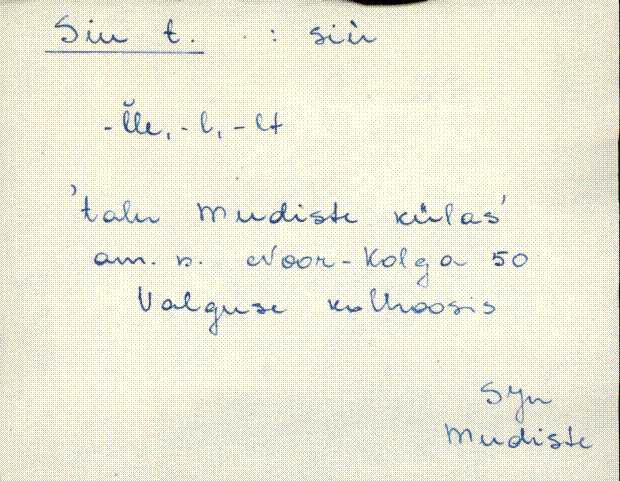 Siu t. : siù
-l̆le, -l, -lt
'talu Mudiste külas'
am. n. Noor-Kolga 50
Valguse kolhoosis
Syn
Mudiste